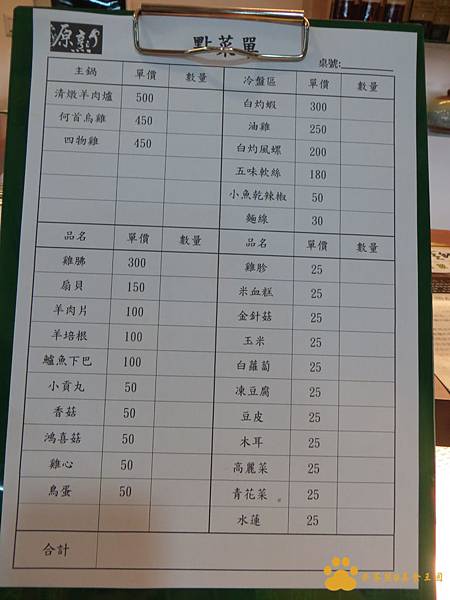 源彰
點菜單
桌號:
主鍋 單價 數量
清燉羊肉爐 500
何首烏雞 450
四物雞 450
冷盤區 單價 數量
白灼蝦 300
油雞 250
白灼風螺 200
五味軟絲 180
小魚乾辣椒 50
麵線 30
品名 單價 數量
雞腩 300
扇貝 150
羊肉片 100
羊培根 100
鱸魚下巴 100
小貢丸 50
香菇 50
鴻喜菇 50
雞心 50
鳥蛋 50
合計
品名 單價 數量
雞胗 25
米血糕 25
金針菇 25
玉米 25
白蘿蔔 25
凍豆腐 25
豆皮 25
木耳 25
高麗菜 25
青花菜 25
水蓮 25